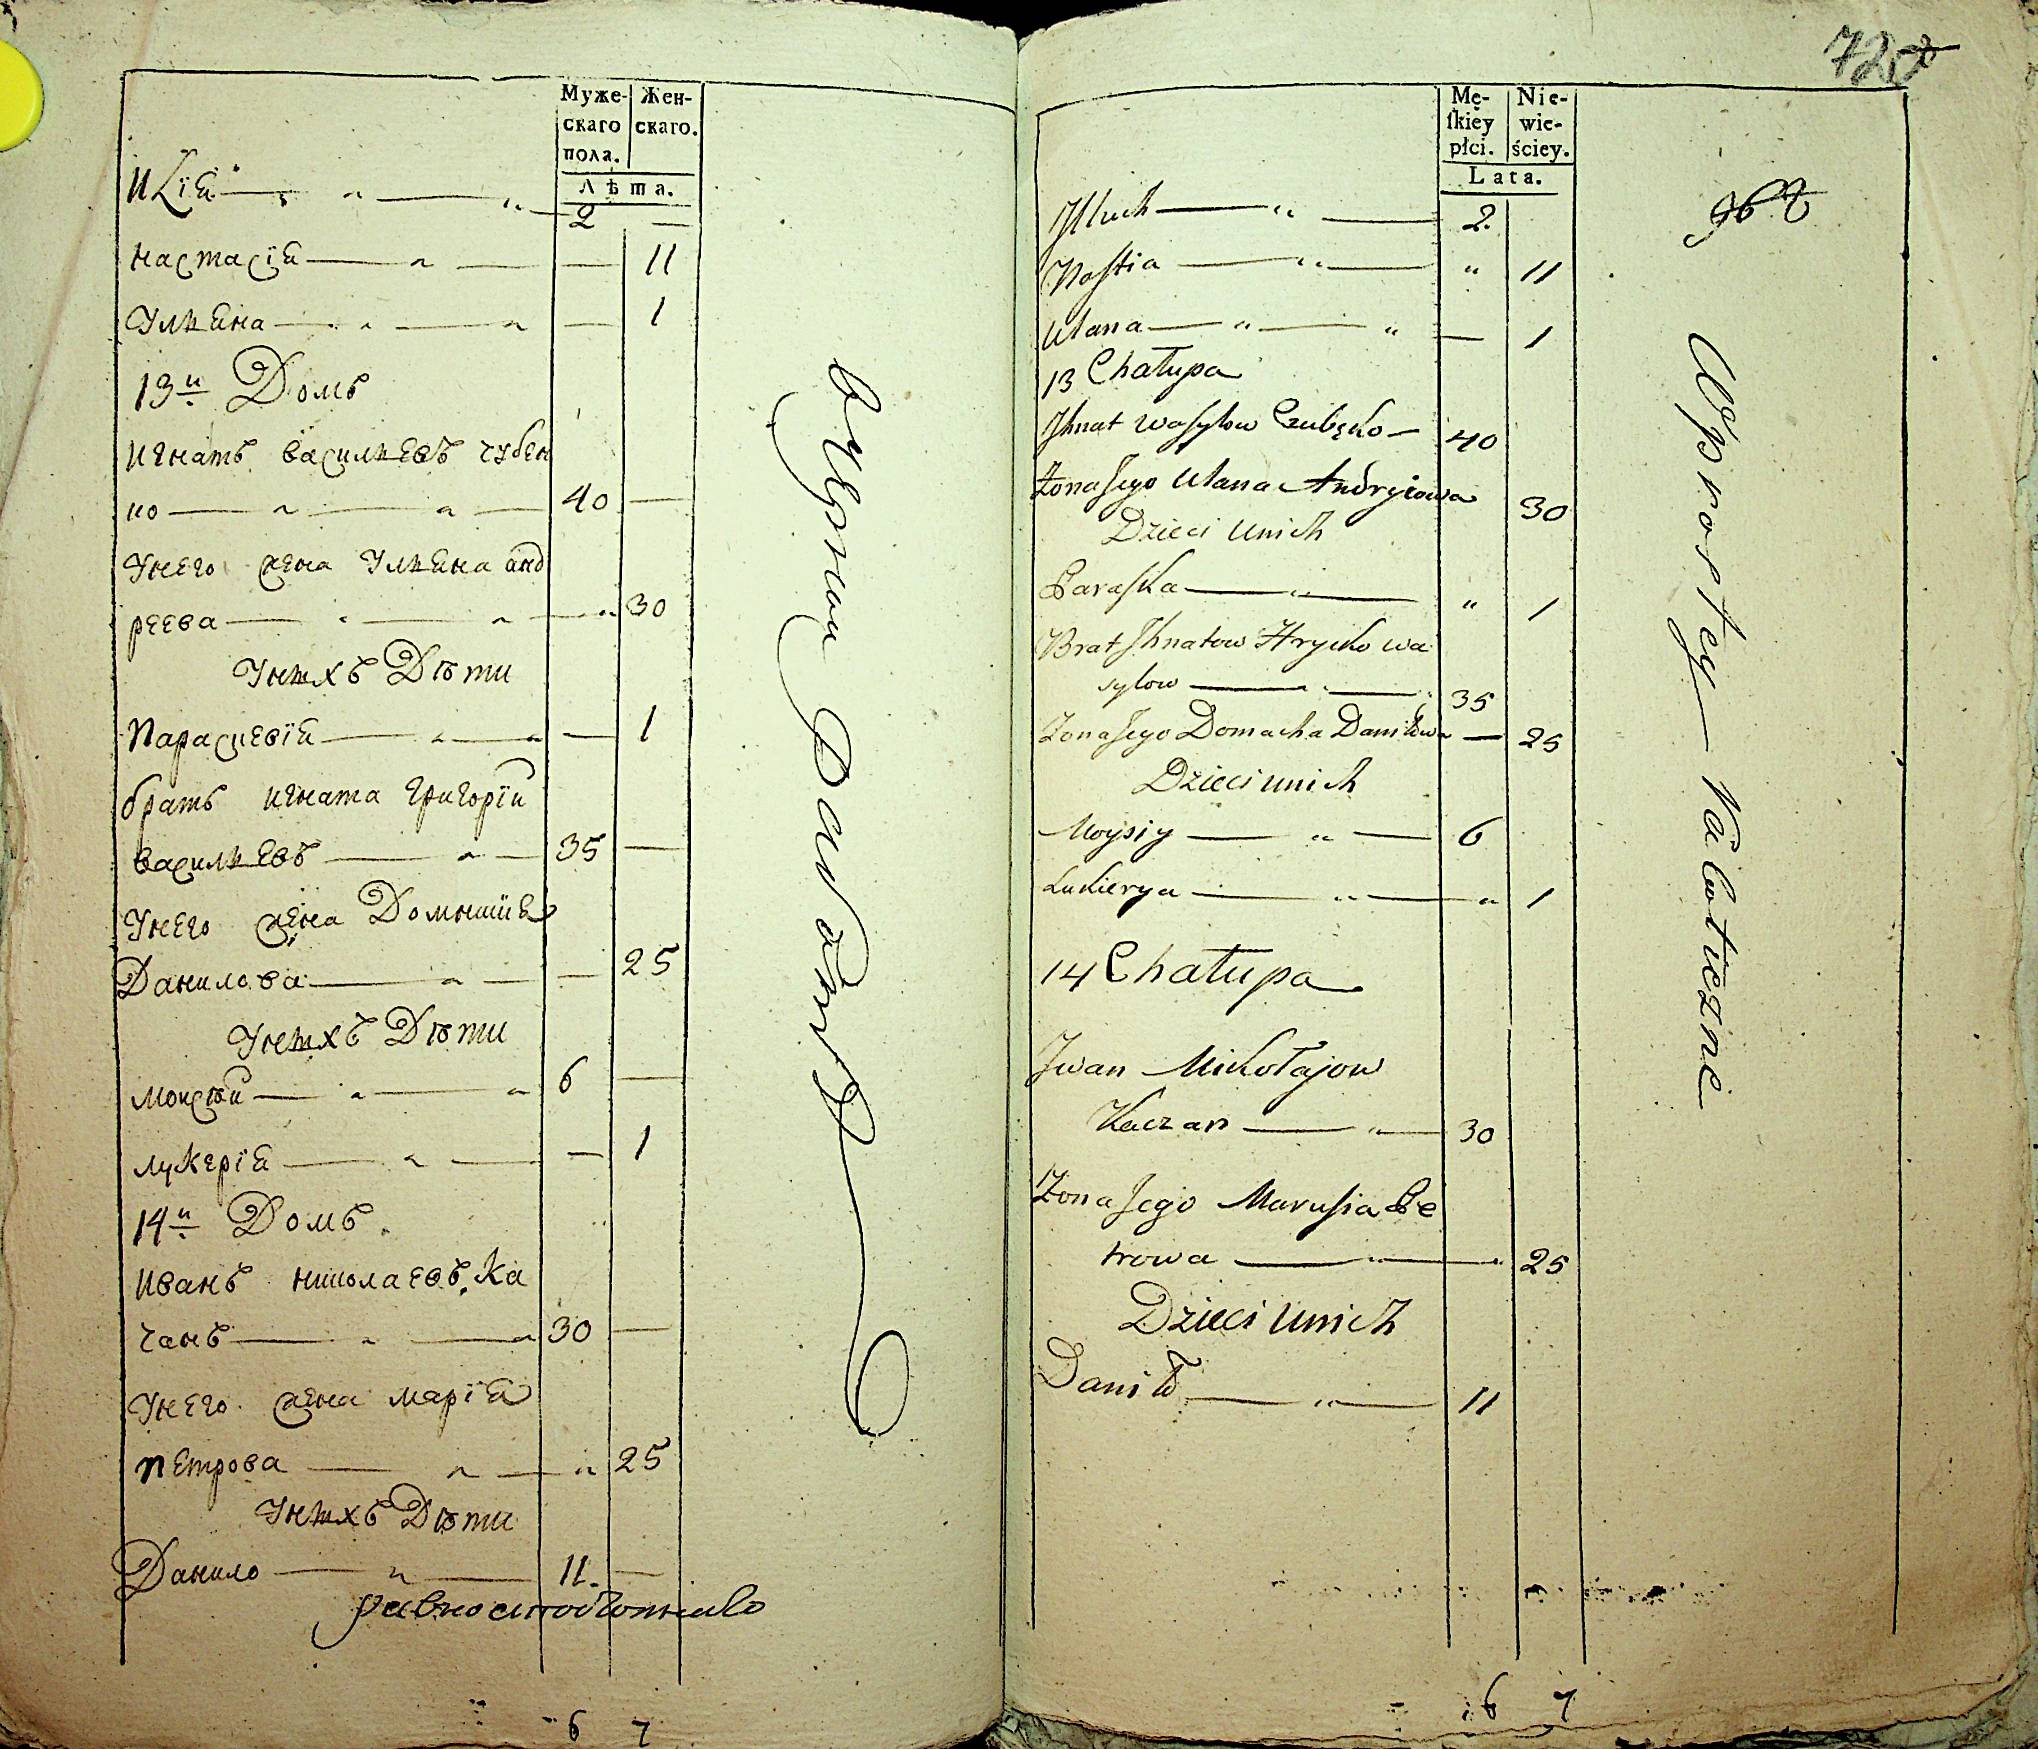 Муже-
скаго
пола.
Жен-
скаго.
Лѣта.
Илїа — 2 —
Настасїа — — 11
Ульяна — — 1
13й Домъ
Игнатъ Васильевъ Чубен
ко — 40 —
У него жена Ульяна Анд
реева — 30
У нихъ Дѣти
Параскевїа — — 1
братъ Игната Григорїй
Васильевъ — 35 —
У него жена Домникїя
Данилова — — 25
У нихъ Дѣти
Моисѣй — 6 —
Лукерїа — — 1
14й Домъ
Иванъ Николаевъ Ка
чанъ — 30 —
У него жена Марїя
Петрова — 25
У нихъ Дѣти
Данило — 11. —
6 7
72
Mę-
ſkiey
płci.
Nie-
wie-
ściey.
Lata.
Jlluch — 2.
Naſtia — " 11
Ulana — — 1
13 Chałupa
Jhnat Wasylow Czubęko — 40
Zona Jego Ulana Andryiowa 30
Dzieci unich
Paraſka — " 1
Brat Jhnatow Hrycko Wa
sylow — 35
Zona Jego Domacha Daniłowa — 25
Dzieci unich
Moysiy — 6
Lukierya — " 1
14 Chałupa
Jwan Mikołajow
Kaczan — 30
Zona Jego Maruſia Pe
trowa — 25
Dzieci unich
Daniło — 11
Wprostey
6 7